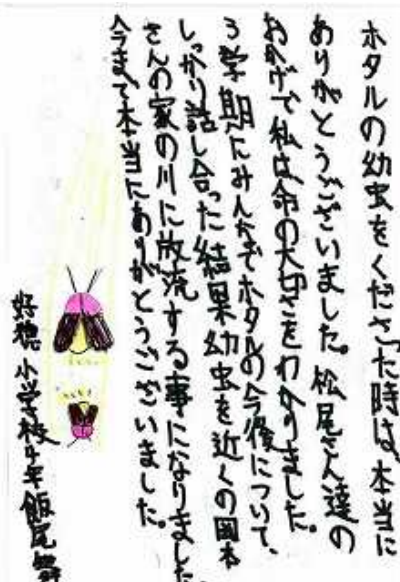 ホタルの幼虫をくださった時は、本当に
ありがとうございました。松尾さん達の
おかげで私は命の大切さをわかりました。
3学期にみんなでホタルの今後について、
しっかり話し合った結果幼虫を近くの国本
さんの家の川に放流する事になりました。
今まで本当にありがとうございました。
好穂小学校4年飯尾